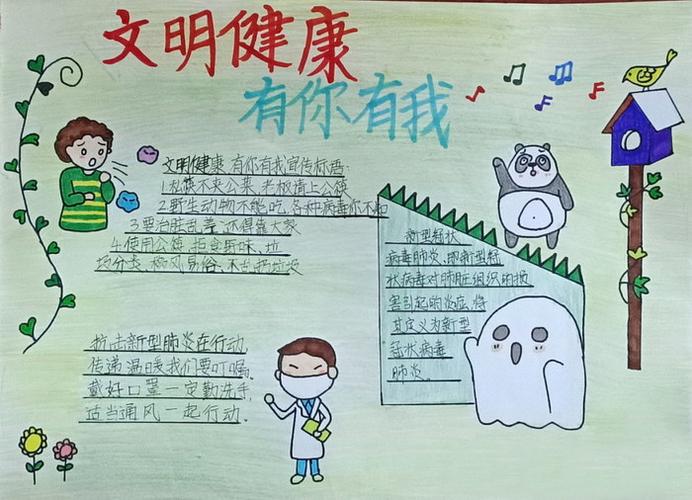 文明健康
有你有我
文明健康 有你有我宣传标语
1.私筷不夹公菜,老板请上公筷
2.野生动物不能吃,各种病毒你不知
3.要治脏乱差,还得靠大家
4.使用公筷,拒食野味,垃
圾分类,移风易俗,不乱扔垃圾
抗击新型肺炎在行动,
传递温暖我们要叮嘱,
戴好口罩一定勤洗手,
适当通风一起行动.
新型冠状
病毒肺炎,即新型冠
状病毒对肺脏组织的损
害引起的炎症,将
其定义为新型
冠状病毒
肺炎.